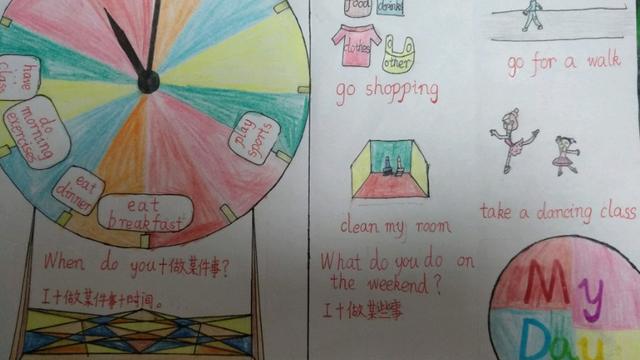 have
class
do
morning
exercises
eat
dinner
eat
breakfast
play
sports
When do you+做某件事?
I+做某件事+时间。
food
drinks
clothes
other
go shopping
go for a walk
clean my room
take a dancing class
What do you do on
the weekend?
I+做某些事
My
Day